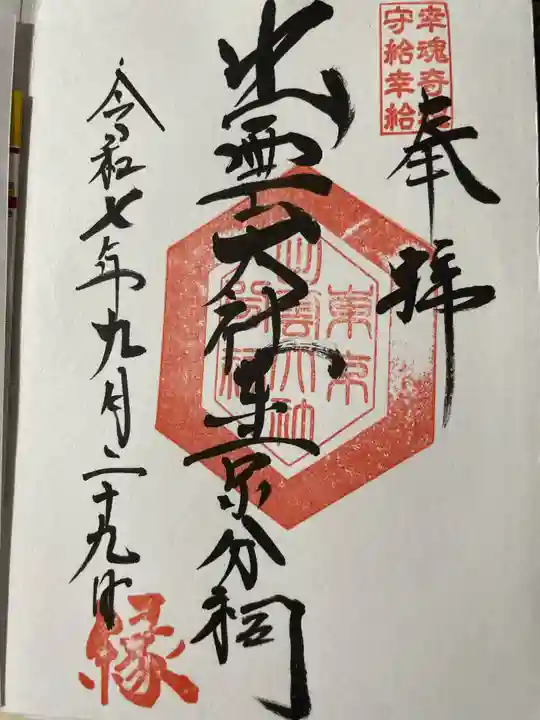 幸魂奇魂
守給幸給
奉拝
出雲大社東京分祠
東京
出雲大社
分祠
令和七年九月二十九日
縁